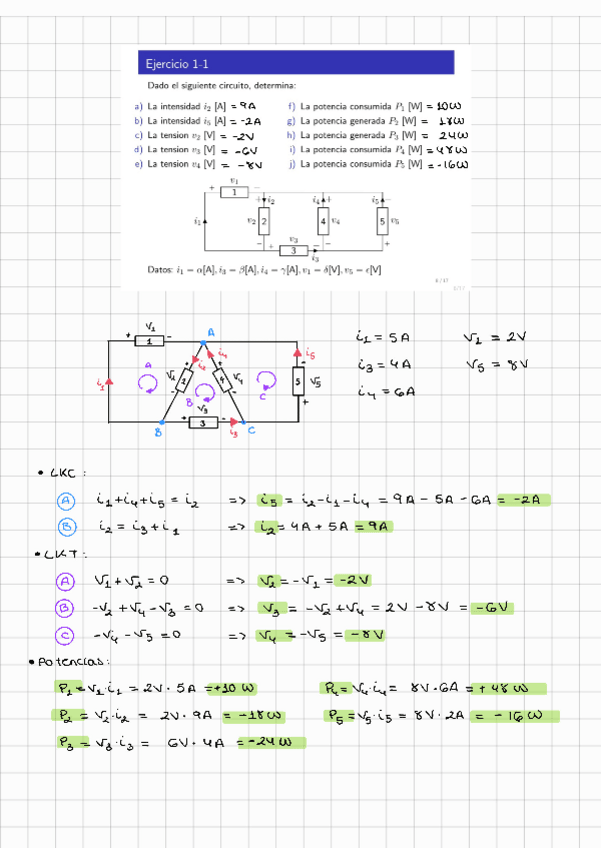 Ejercicio 1-1
Dado el siguiente circuito, determina:
a) La intensidad i₂ [A] = 9A
b) La intensidad i₅ [A] = -2A
c) La tension v₂ [V] = -2V
d) La tension v₃ [V] = -6V
e) La tension v₄ [V] = -8V
f) La potencia consumida P₁ [W] = 10W
g) La potencia generada P₂ [W] = 18W
h) La potencia generada P₃ [W] = 24W
i) La potencia consumida P₄ [W] = 48W
j) La potencia consumida P₅ [W] = -16W
v₁
+ 1 −
i₁ v₂ + i₂ 2 − i₄ + 4 v₄ − i₅ − 5 v₅ +
v₃
+ 3 −
i₃
Datos: i₁ = α[A], i₃ = β[A], i₄ = γ[A], v₁ = δ[V], v₅ = ε[V]
V₁
+ 1 - A
i₁ A V₂ 2 i₂ B i₄ 4 V₄ C i₅ - 5 V₅ +
V₃
B + 3 - i₃ C
i₁ = 5A V₁ = 2V
i₃ = 4A V₅ = 8V
i₄ = 6A
• LKC:
A i₁+i₄+i₅ = i₂ => i₅ = i₂-i₁-i₄ = 9A - 5A - 6A = -2A
B i₂ = i₃ + i₁ => i₂ = 4A + 5A = 9A
• LKT:
A V₁ + V₂ = 0 => V₂ = -V₁ = -2V
B -V₂ + V₄ - V₃ = 0 => V₃ = -V₂ + V₄ = 2V - 8V = -6V
C -V₄ - V₅ = 0 => V₄ = -V₅ = -8V
• Potencias:
P₁ = V₁·i₁ = 2V · 5A = +10 W
P₂ = V₂·i₂ = 2V · 9A = -18W
P₃ = V₃·i₃ = 6V · 4A = -24W
P₄ = V₄·i₄ = 8V·6A = +48 W
P₅ = V₅·i₅ = 8V·2A = -16W